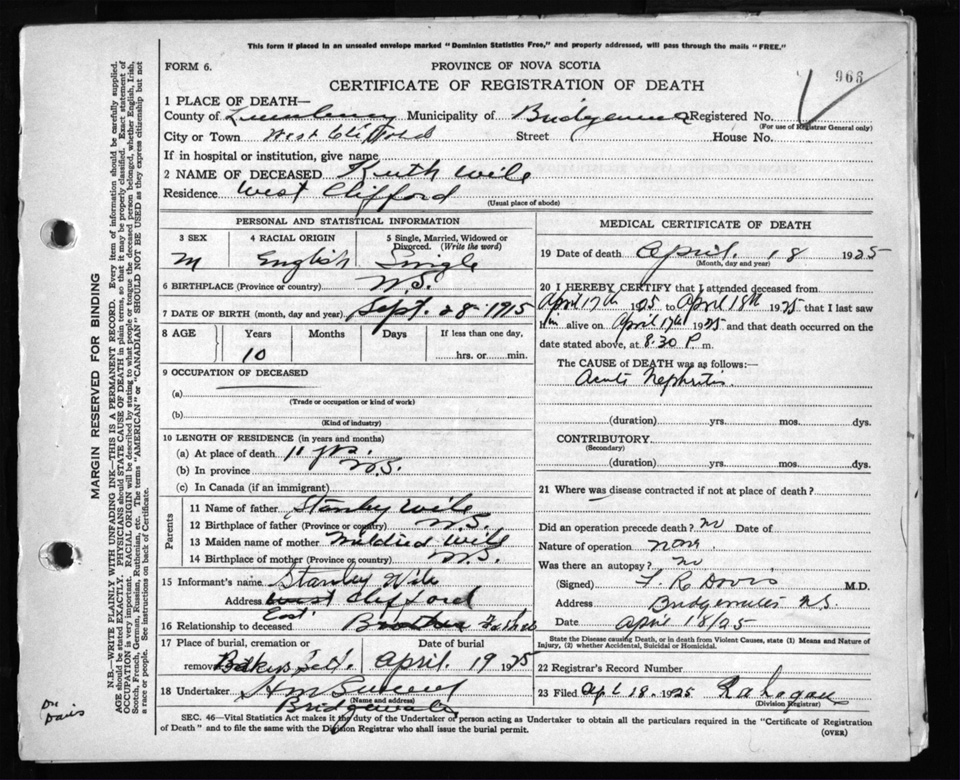 This form if placed in an unsealed envelope marked "Dominion Statistics Free," and properly addressed, will pass through the mails "FREE."
FORM 6.
PROVINCE OF NOVA SCOTIA
966
CERTIFICATE OF REGISTRATION OF DEATH
1 PLACE OF DEATH—
County of Lunenburg Municipality of Registered No.
(For use of Registrar General only)
City or Town West Clifford Street House No.
If in hospital or institution, give name
2 NAME OF DECEASED Ruth Wile
Residence West Clifford
(Usual place of abode)
PERSONAL AND STATISTICAL INFORMATION
3 SEX
M
4 RACIAL ORIGIN
English
5 Single, Married, Widowed or Divorced. (Write the word)
Single
6 BIRTHPLACE (Province or country) N.S.
7 DATE OF BIRTH (month, day and year) Sept. 28 1915
8 AGE Years Months Days If less than one day,
10 hrs. or min.
9 OCCUPATION OF DECEASED
(a)
(Trade or occupation or kind of work)
(b)
(Kind of industry)
10 LENGTH OF RESIDENCE (in years and months)
(a) At place of death 11 yrs.
(b) In province N.S.
(c) In Canada (if an immigrant)
Parents
11 Name of father Stanley Wile
12 Birthplace of father (Province or country) N.S.
13 Maiden name of mother Mildred Wile
14 Birthplace of mother (Province or country) N.S.
15 Informant's name Stanley Wile
Address West Clifford
East
16 Relationship to deceased Brother Father
17 Place of burial, cremation or removal Date of burial
April 19 1925
18 Undertaker
(Name and address)
Bridgewater
MEDICAL CERTIFICATE OF DEATH
19 Date of death April. 18 1925
(Month, day and year)
20 I HEREBY CERTIFY that I attended deceased from
April 17th 1925 to April 18th 1925 that I last saw
him alive on April 1925 and that death occurred on
date stated above, at 8.30 P. m.
The CAUSE OF DEATH was as follows:—
Acute Nephritis
(duration) yrs. mos. dys.
CONTRIBUTORY
(Secondary)
(duration) yrs. mos. dys.
21 Where was disease contracted if not at place of death?
Did an operation precede death? no Date of
Nature of operation none
Was there an autopsy? no
(Signed) F. R. Davis M.D.
Address Bridgewater N.S.
Date April 18/25
State the Disease causing Death, or in death from Violent Causes, state (1) Means and Nature of Injury, (2) whether Accidental, Suicidal or Homicidal.
22 Registrar's Record Number
23 Filed Apl 18. 1925
(Division Registrar)
SEC. 46—Vital Statistics Act makes it the duty of the Undertaker or person acting as Undertaker to obtain all the particulars required in the "Certificate of Registration
of Death" and to file the same with the Division Registrar who shall issue the burial permit.
(OVER)
MARGIN RESERVED FOR BINDING
N.B.—WRITE PLAINLY WITH UNFADING INK—THIS IS A PERMANENT RECORD. Every item of information should be carefully supplied.
AGE should be stated EXACTLY. PHYSICIANS should STATE CAUSE OF DEATH in plain terms, so that it may be properly classified. Exact statement of
OCCUPATION is very important. RACIAL ORIGIN will be described by stating to what people or tongue the deceased person belonged, whether English, Irish,
Scotch, French, German, Russian, Ruthenian, etc. The terms "AMERICAN" or "CANADIAN" SHOULD NOT BE USED as they express citizenship but not
a race or people. See instructions on back of Certificate.
Dr
Davis